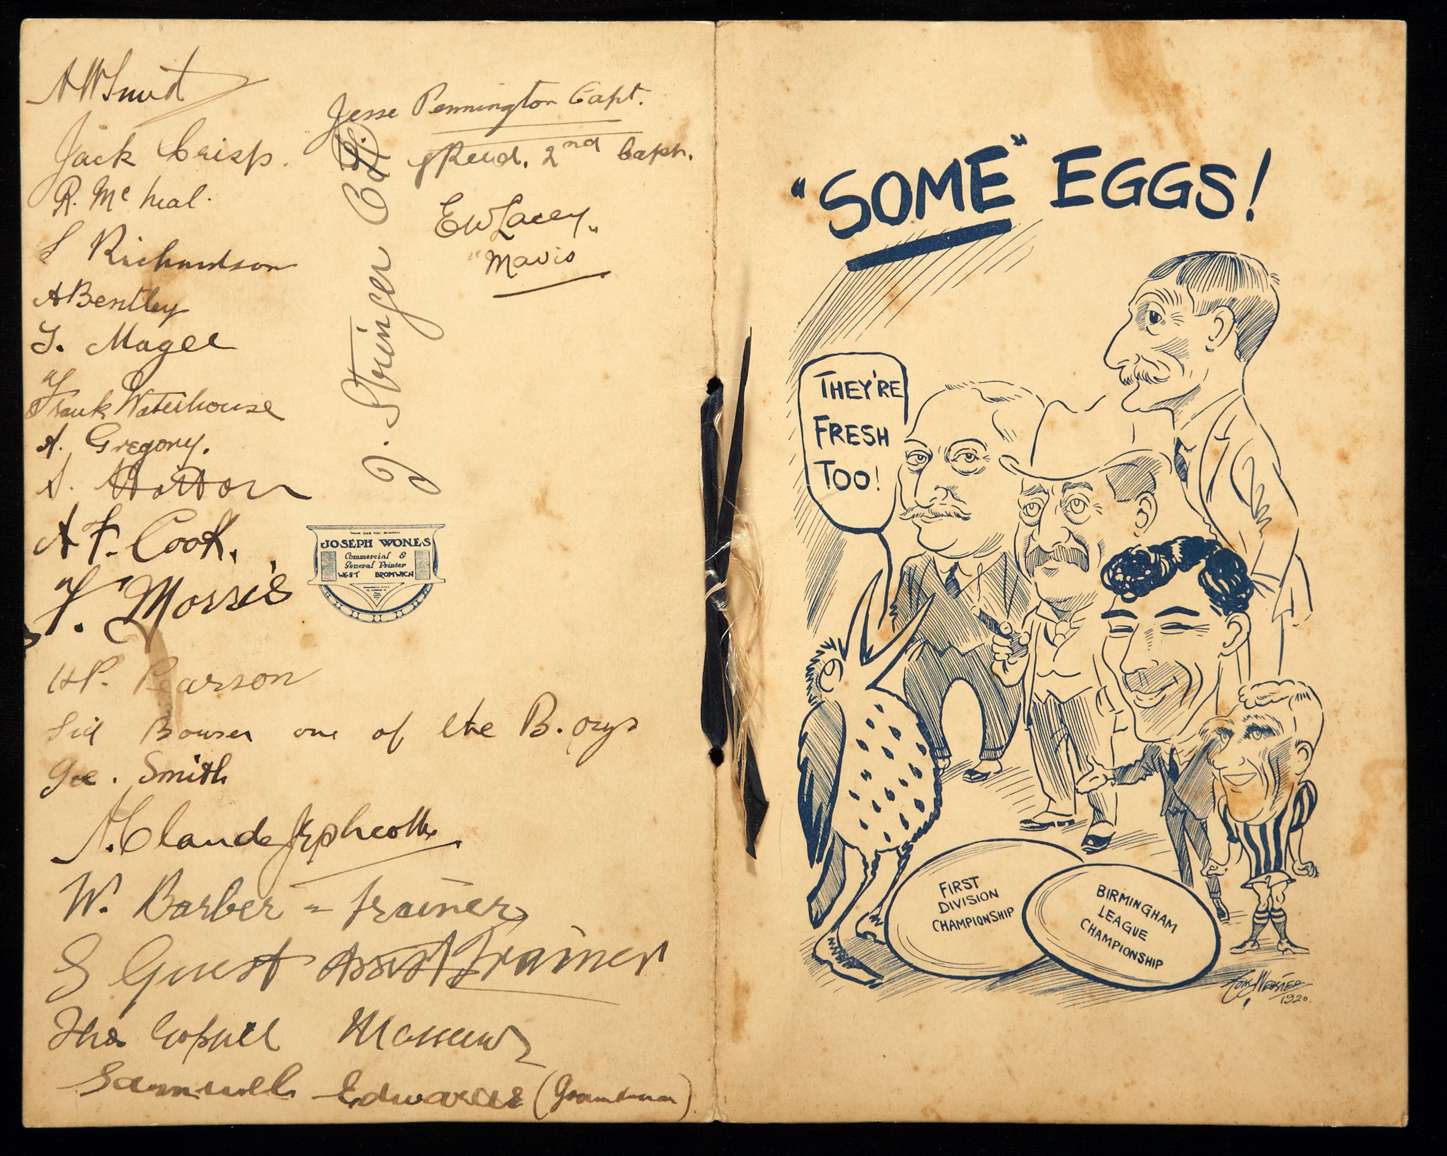 A W Smith
Jack Crisp.
R. Mc Neal.
S Richardson
A Bentley
T. Magee
Frank Waterhouse
A. Gregory.
S. Hatton
A F. Cook.
F. Morris
H P. Pearson
Sid Bowser one of the B. oys
Geo. Smith
A. Claude Jephcott
W. Barber - Trainer
G Guest Assist Trainer
Masseur
Samuel Edwards (Groundsman)
Jesse Pennington Capt.
J Reed. 2nd Capt.
E W Lacey
"Mavis"
J. Stringer
JOSEPH WONES
Commercial &
General Printer
WEST BROMWICH
"SOME" EGGS!
THEY'RE
FRESH
TOO!
FIRST
DIVISION
CHAMPIONSHIP
BIRMINGHAM
LEAGUE
CHAMPIONSHIP
Tom Webster
1920.